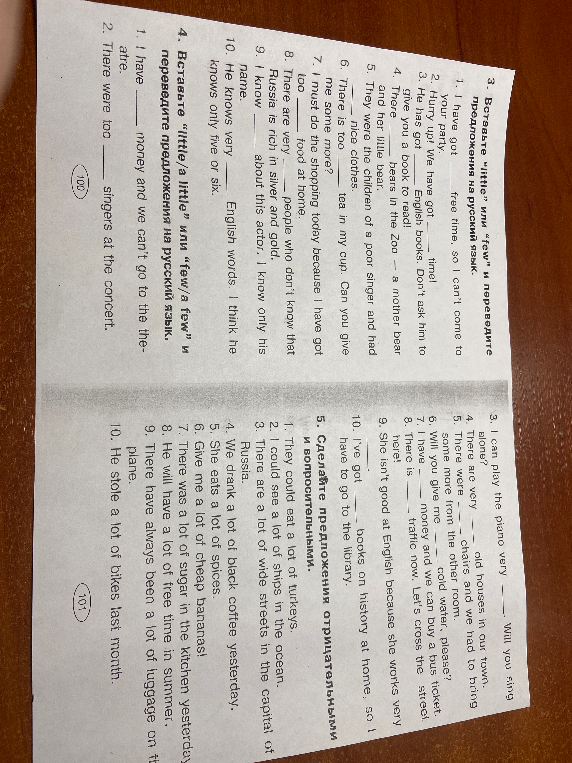 3. Вставьте "little" или "few" и переведите
предложения на русский язык.
1. I have got ____ free time, so I can't come to
your party.
2. Hurry up! We have got ____ time!
3. He has got ____ English books. Don't ask him to
give you a book to read!
4. There ____ bears in the Zoo — a mother bear
and her little bear.
5. They were the children of a poor singer and had
____ nice clothes.
6. There is too ____ tea in my cup. Can you give
me some more?
7. I must do the shopping today because I have got
too ____ food at home.
8. There are very ____ people who don't know that
Russia is rich in silver and gold.
9. I know ____ about this actor. I know only his
name.
10. He knows very ____ English words. I think he
knows only five or six.
4. Вставьте "little/a little" или "few/a few" и
переведите предложения на русский язык.
1. I have ____ money and we can't go to the the-
atre.
2. There were too ____ singers at the concert.
100
3. I can play the piano very ____. Will you sing
alone?
4. There are very ____ old houses in our town.
5. There were ____ chairs and we had to bring
some more from the other room.
6. Will you give me ____ cold water, please?
7. I have ____ money and we can buy a bus ticket.
8. There is ____ traffic now. Let's cross the street
here!
9. She isn't good at English because she works very
____.
10. I've got ____ books on history at home, so I
have to go to the library.
5. Сделайте предложения отрицательными
и вопросительными.
1. They could eat a lot of turkeys.
2. I could see a lot of ships in the ocean.
3. There are a lot of wide streets in the capital of
Russia.
4. We drank a lot of black coffee yesterday.
5. She eats a lot of spices.
6. Give me a lot of cheap bananas!
7. There was a lot of sugar in the kitchen yesterday
8. He will have a lot of free time in summer.
9. There have always been a lot of luggage on th
plane.
10. He stole a lot of bikes last month.
101